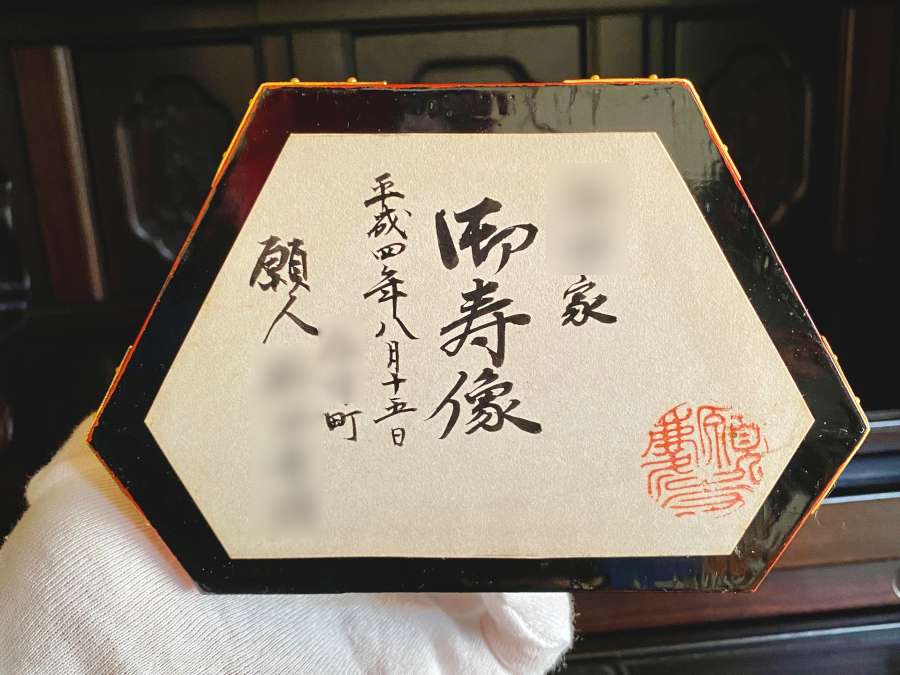 家
御寿像
平成四年八月十五日
町
願人